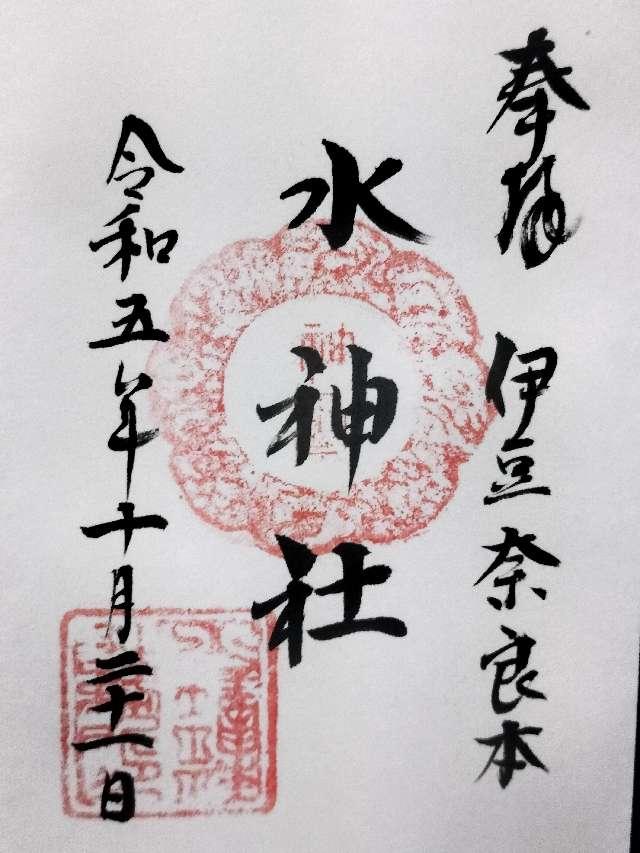 奉拝 伊豆奈良本
水神社
令和五年十月二十一日